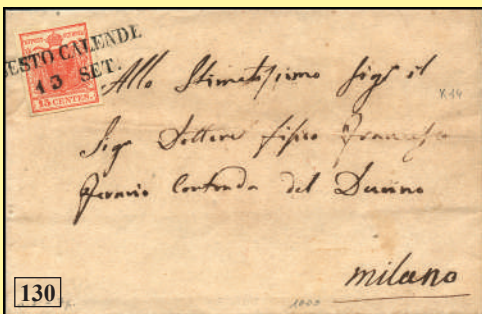 SESTO CALENDE
13 SET.
15 CENTES.
Allo Stimatissimo Sigr il
Sigr Dottore fisico Francesco
Contrada del Durino
Milano
130
1000